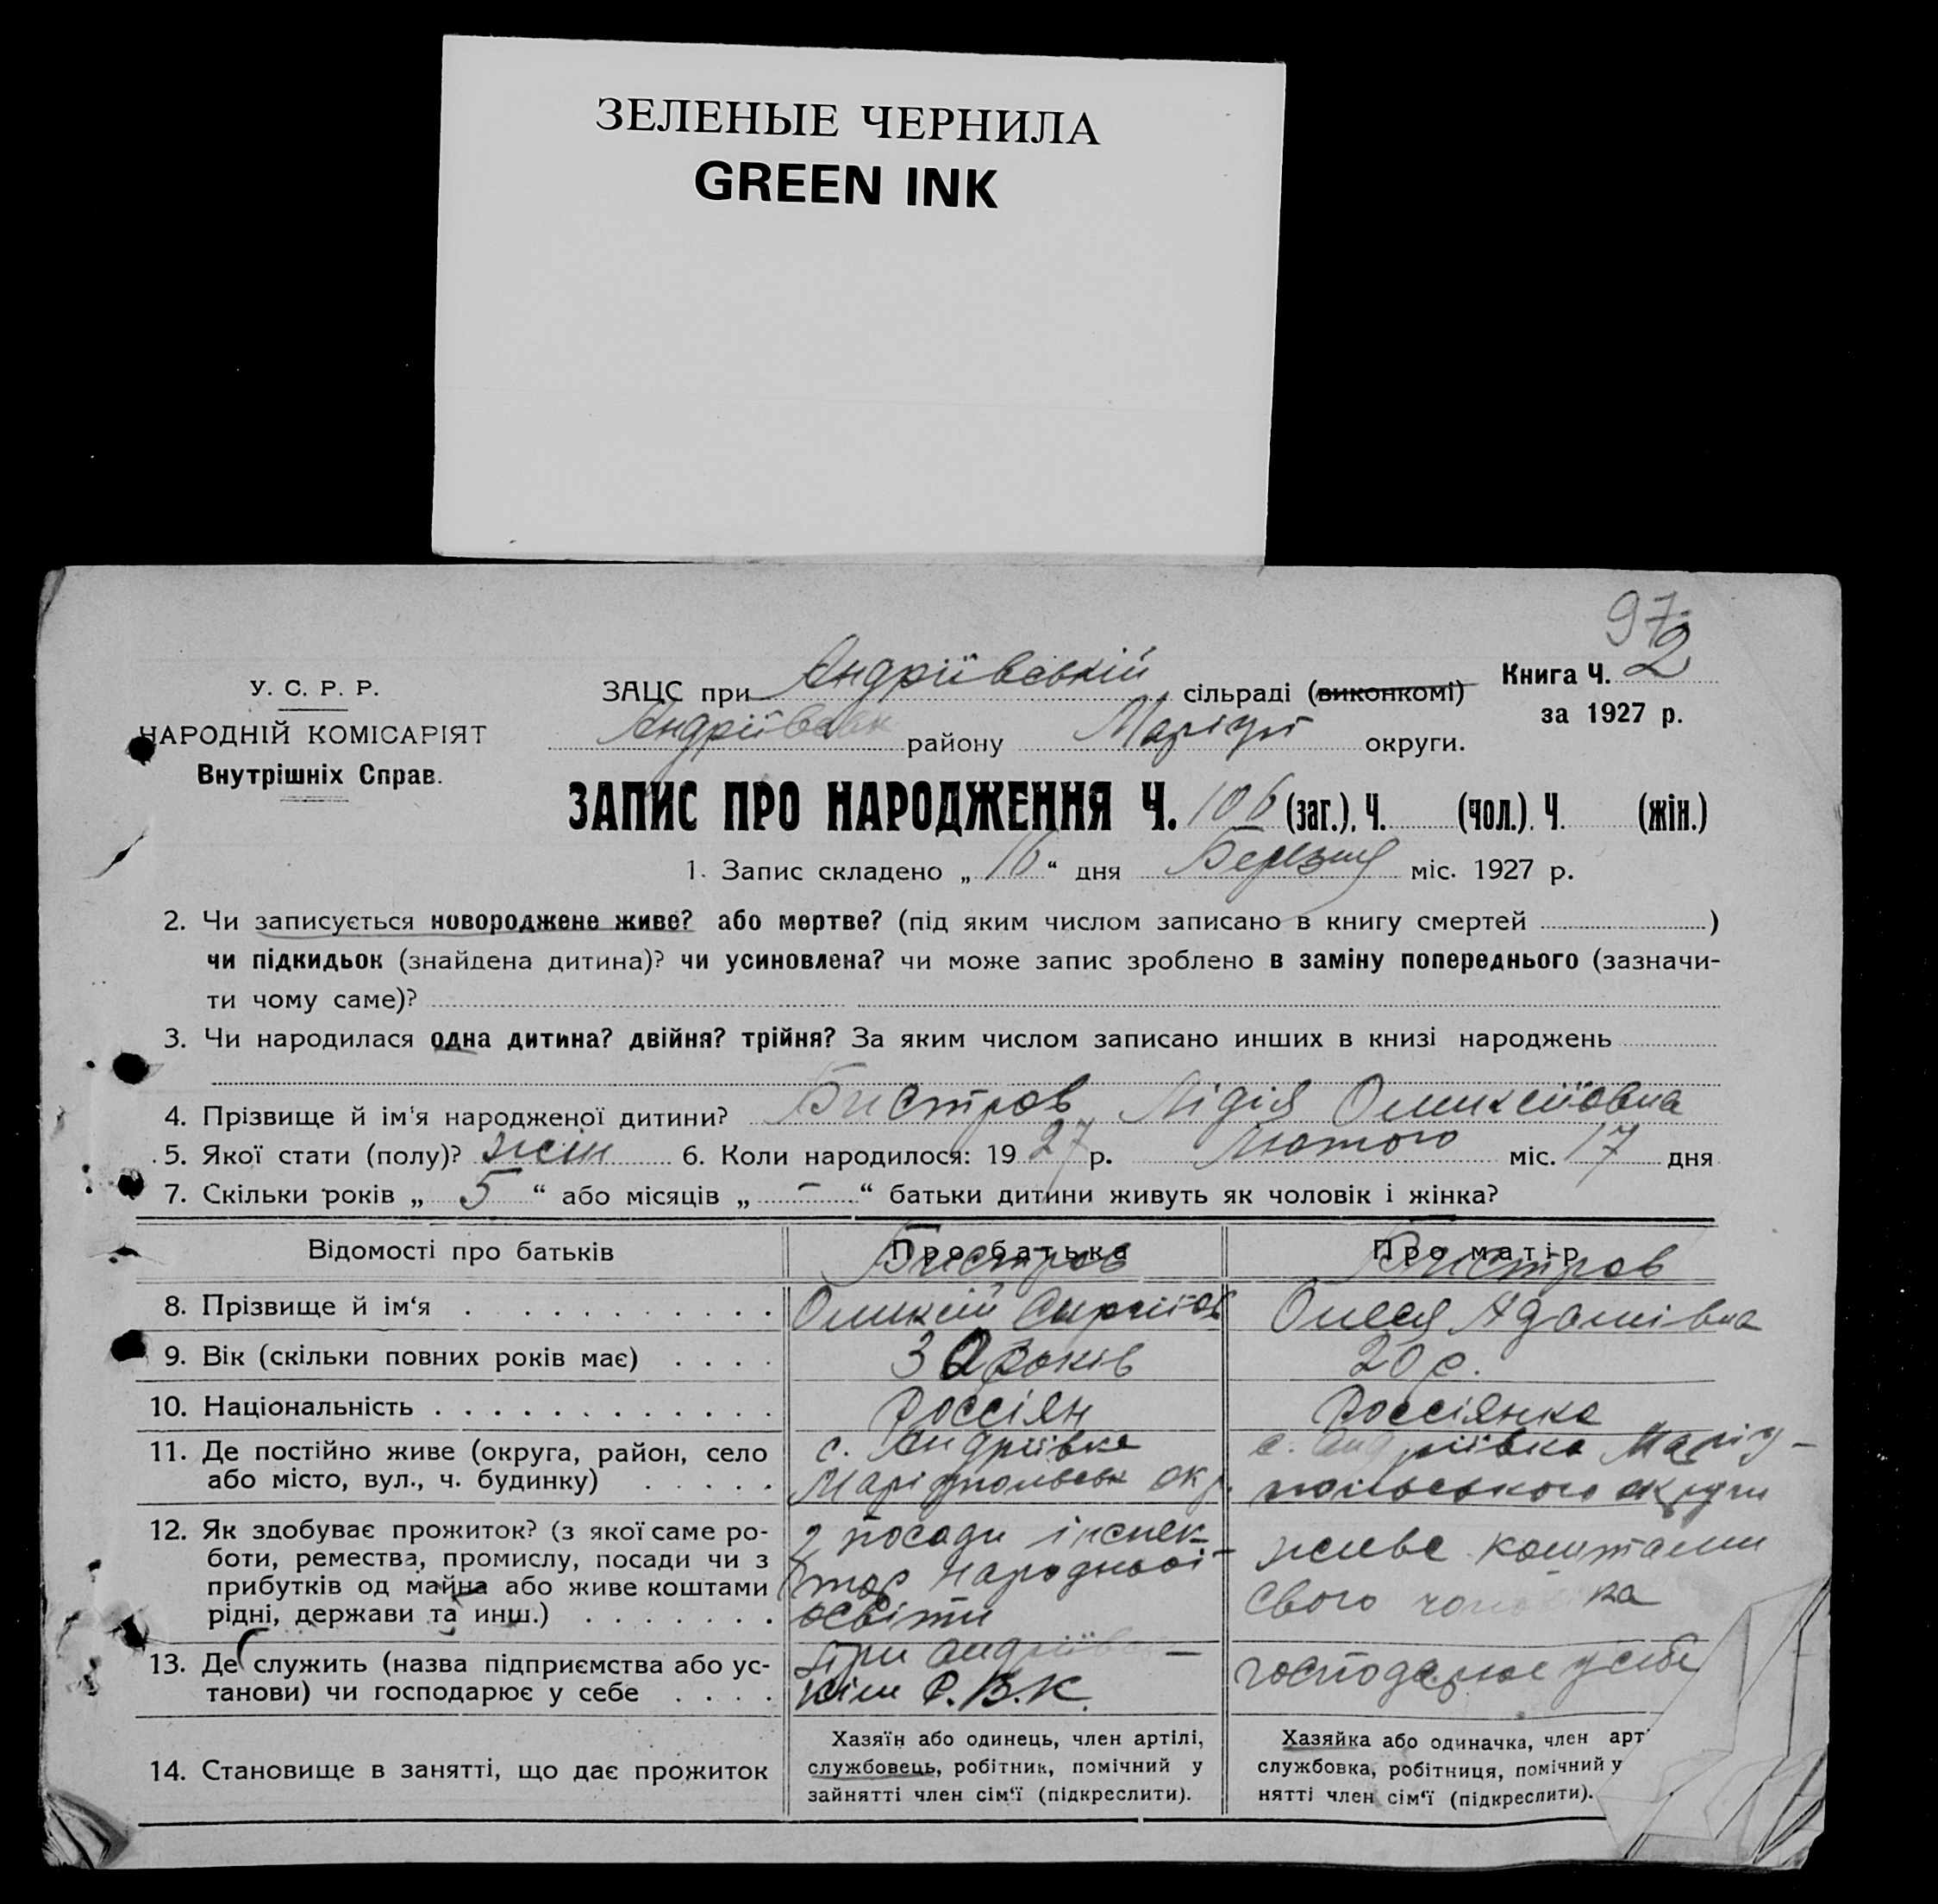 ЗЕЛЕНЫЕ ЧЕРНИЛА
GREEN INK
97
У. С. Р. Р.
НАРОДНІЙ КОМІСАРІЯТ
Внутрішніх Справ.
ЗАЦС при Андріївській сільраді (виконкомі)
Книга Ч. 2
за 1927 р.
Андріївськ району Маріуп округи.
ЗАПИС ПРО НАРОДЖЕННЯ Ч. 106 (заг.), Ч. (чол.). Ч. (жін.)
1. Запис складено „ 16 “ дня Березня міс. 1927 р.
2. Чи записується новороджене живе? або мертве? (під яким числом записано в книгу смертей )
чи підкидьок (знайдена дитина)? чи усиновлена? чи може запис зроблено в заміну попереднього (зазначи-
ти чому саме)?
3. Чи народилася одна дитина? двійня? трійня? За яким числом записано инших в книзі народжень
4. Прізвище й ім'я народженої дитини? Бистров Лідія Олексіївна
5. Якої стати (полу)? жін 6. Коли народилося: 1927 р. Лютого міс. 17 дня
7. Скільки років „ 5 “ або місяців „ - “ батьки дитини живуть як чоловік і жінка?
Відомості про батьків
Про батька
Про матір
8. Прізвище й ім‘я
Бистров
Олексій
Бистров
Олеся Адамівна
9. Вік (скільки повних років має)
30 років
20 р.
10. Національність
Россіян
Россіянка
11. Де постійно живе (округа, район, село
або місто, вул., ч. будинку)
с. Андріївка
Маріупольськ окр.
с. Андріївка Маріу-
польського округи
12. Як здобуває прожиток? (з якої саме ро-
боти, ремества, промислу, посади чи з
прибутків од майна або живе коштами
рідні, держави та инш.)
з посади інспек-
тор народньої
освіти
живе коштами
свого чоловіка
13. Де служить (назва підприємства або ус-
танови) чи господарює у себе
при Андріївсь-
кім Р.В.К.
господарює у себе
14. Становище в занятті, що дає прожиток
Хазяїн або одинець, член артілі,
службовець, робітник, помічний у
зайнятті член сім‘ї (підкреслити).
Хазяйка або одиначка, член арт
службовка, робітниця, помічний у
нятті член сім‘ї (підкреслити).